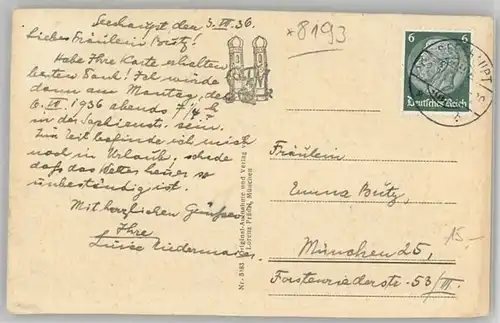 Seeshaupt den 3.VII.36.
Liebes Fräulein Butz!
Habe Ihre Karte erhalten
besten Dank! Ich würde
dann am Montag, de
6.VII.1936 abends 7 1/4 h
in der Sophienst. sein.
Zur Zeit befinde ich mich
noch in Urlaub, schade
daß das Wetter heuer so
unbeständig ist.
Mit herzlichen Grüßen
Ihre
Luise Niedermaier.
*8193
6 6
Deutsches Reich
SEESHAUPT
Nr. 3183 Original-Aufnahme und Verlag von
Lorenz Fränzl, München
Fräulein
Emma Butz,
München 25,
Forstenriederstr. 53/III.
15.-